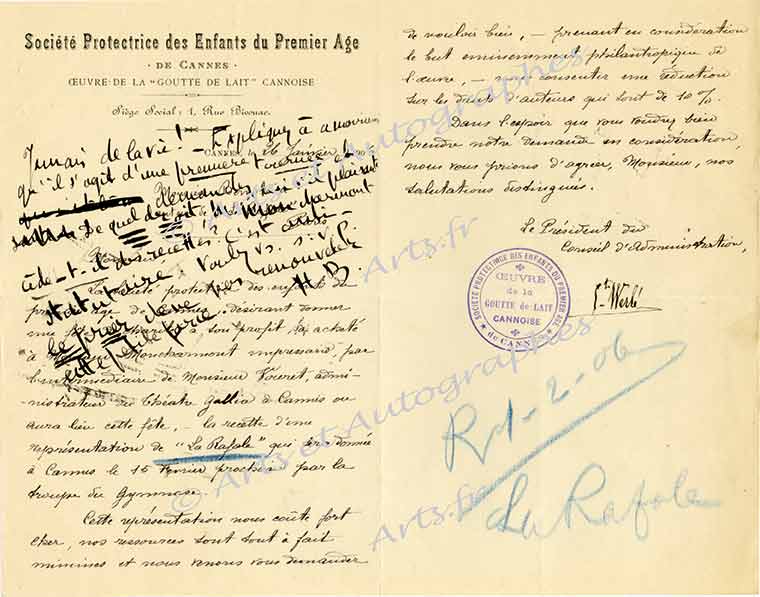 Société Protectrice des Enfants du Premier Age
· DE CANNES ·
ŒUVRE DE LA "GOUTTE DE LAIT" CANNOISE
Siège Social : 1, Rue Bivouac.
CANNES, le 26 Janvier
Jamais de la vie ! – Expliquez à
qu'il s'agit d'une première tournée
De quel droit
des recettes ? C'est
Voulez vs. s. v. p.
me renouveler
cette petite
H. B.
La Société protectrice des enfants du
premier âge de Cannes, désirant donner
son profit, a acheté
à Monsieur Moncharmont impressario, par
l'intermédiaire de Monsieur Vouret, admi-
nistrateur du Théâtre Gallia à Cannes où
aura lieu cette fête, – la recette d'une
représentation de "La Rafale" qui sera donnée
à Cannes le 15 Février prochain par la
troupe du Gymnase.
Cette représentation nous coûte fort
cher, nos ressources sont tout à fait
minimes et nous venons vous demander
de vouloir bien, – prenant en considération
le but éminemment philantropique de
l'œuvre, – nous consentir une réduction
sur les droits d'auteurs qui sont de 10 %.
Dans l'espoir que vous voudrez bien
prendre notre demande en considération,
nous vous prions d'agréer, Monsieur, nos
salutations distinguées.
Le Président du
Conseil d'Administration,
SOCIÉTÉ PROTECTRICE DES ENFANTS DU PREMIER AGE
ŒUVRE
de la
GOUTTE DE LAIT
CANNOISE
de CANNES
R 1-2-06
La Rafale
© Arts et Autographes
Arts.fr